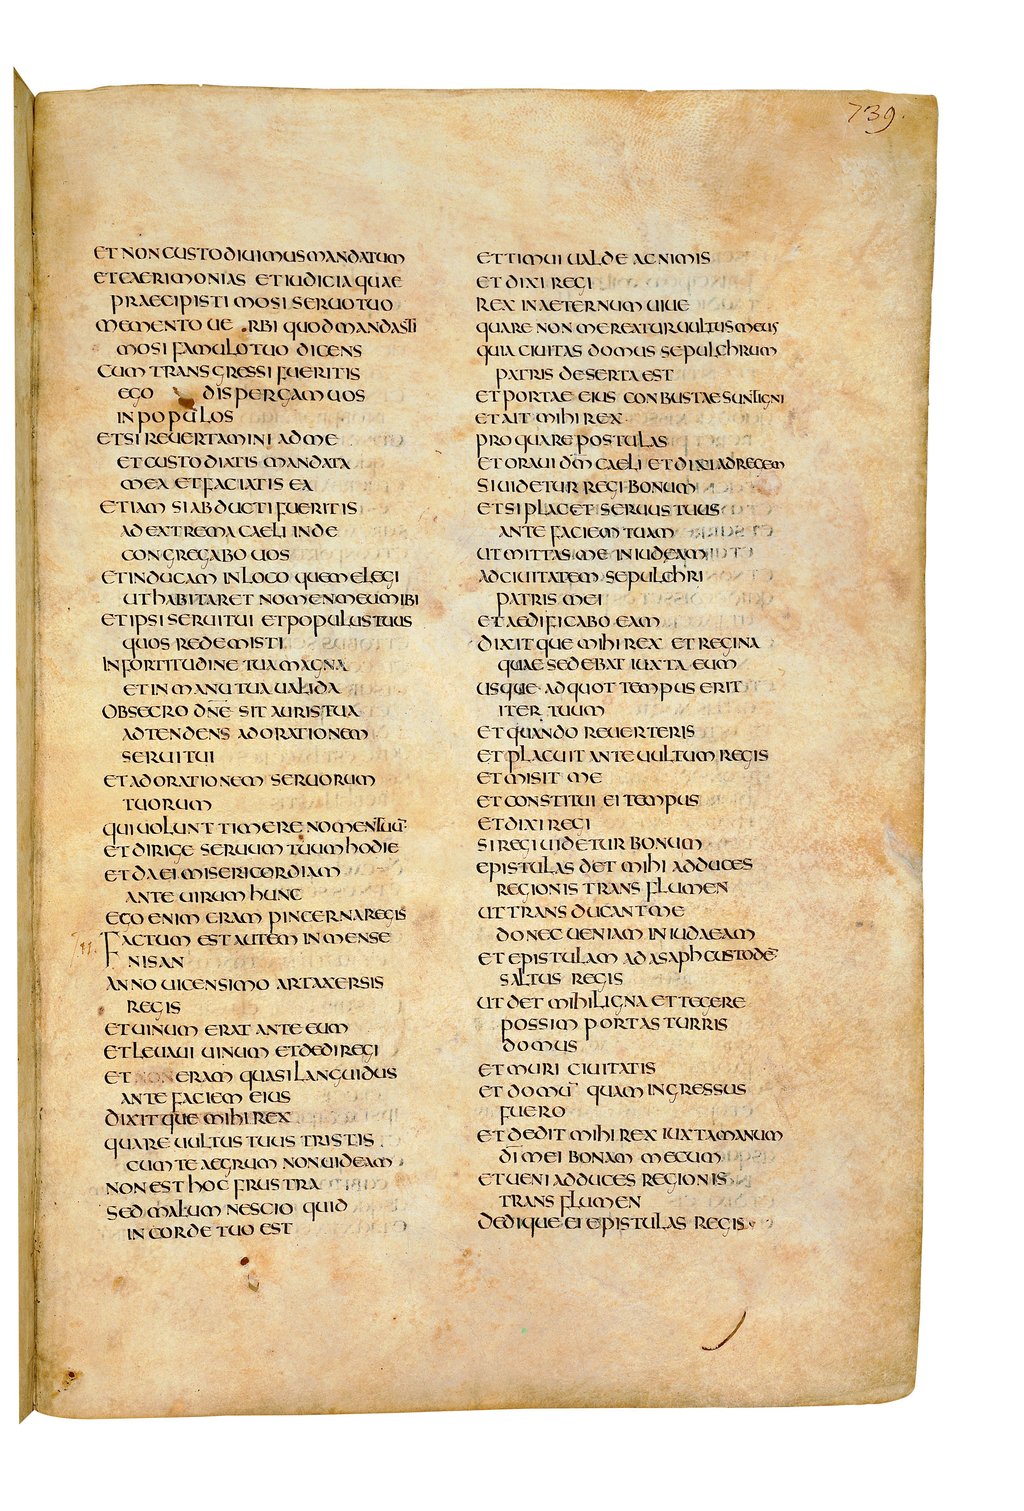 739.
ET NON CUSTODIUIMUS MANDATUM
ET CAERIMONIAS ET IUDICIA QUAE
PRAECIPISTI MOSI SERUO TUO
MEMENTO UE RBI QUOD MANDASTI
MOSI FAMULO TUO DICENS
CUM TRANSGRESSI FUERITIS
EGO DISPERGAM UOS
IN POPULOS
ET SI REUERTAMINI AD ME
ET CUSTODIATIS MANDATA
MEA ET FACIATIS EA
ETIAM SI ABDUCTI FUERITIS
AD EXTREMA CAELI INDE
CONGREGABO UOS
ET INDUCAM IN LOCO QUEM ELEGI
UT HABITARET NOMEN MEUM IBI
ET IPSI SERUI TUI ET POPULUS TUUS
QUOS REDEMISTI
IN FORTITUDINE TUA MAGNA
ET IN MANU TUA UALIDA
OBSECRO DNE SIT AURIS TUA
ADTENDENS AD ORATIONEM
SERUI TUI
ET AD ORATIONEM SERUORUM
TUORUM
QUI UOLUNT TIMERE NOMEN TUU
ET DIRIGE SERUUM TUUM HODIE
ET DA EI MISERICORDIAM
ANTE UIRUM HUNC
EGO ENIM ERAM PINCERNA REGIS
FACTUM EST AUTEM IN MENSE
NISAN
ANNO UICENSIMO ARTAXERSIS
REGIS
ET UINUM ERAT ANTE EUM
ET LEUAUI UINUM ET DEDI REGI
ET NON ERAM QUASI LANGUIDUS
ANTE FACIEM EIUS
DIXITQUE MIHI REX
QUARE UULTUS TUUS TRISTIS
CUM TE AEGRUM NON UIDEAM
NON EST HOC FRUSTRA
SED MALUM NESCIO QUID
IN CORDE TUO EST
ET TIMUI UALDE AC NIMIS
ET DIXI REGI
REX IN AETERNUM UIUE
QUARE NON MEREATUR UULTUS MEUS
QUIA CIUITAS DOMUS SEPULCHRUM
PATRIS DESERTA EST
ET PORTAE EIUS CONBUSTAE SUNT IGNI
ET AIT MIHI REX
PRO QUA RE POSTULAS
ET ORAUI DM CAELI ET DIXI AD REGEM
SI UIDETUR REGI BONUM
ET SI PLACET SERUUS TUUS
ANTE FACIEM TUAM
UT MITTAS ME IN IUDEAM
AD CIUITATEM SEPULCHRI
PATRIS MEI
ET AEDIFICABO EAM
DIXITQUE MIHI REX ET REGINA
QUAE SEDEBAT IUXTA EUM
USQUE AD QUOT TEMPUS ERIT
ITER TUUM
ET QUANDO REUERTERIS
ET PLACUIT ANTE UULTUM REGIS
ET MISIT ME
ET CONSTITUI EI TEMPUS
ET DIXI REGI
SI REGI UIDETUR BONUM
EPISTULAS DET MIHI AD DUCES
REGIONIS TRANS FLUMEN
UT TRANSDUCANT ME
DONEC UENIAM IN IUDAEAM
ET EPISTULAM AD ASAPH CUSTODE
SALTUS REGIS
UT DET MIHI LIGNA ET TEGERE
POSSIM PORTAS TURRIS
DOMUS
ET MURI CIUITATIS
ET DOMU QUAM INGRESSUS
FUERO
ET DEDIT MIHI REX IUXTA MANUM
DI MEI BONAM MECUM
ET UENI AD DUCES REGIONIS
TRANS FLUMEN
DEDIQUE EI EPISTULAS REGIS